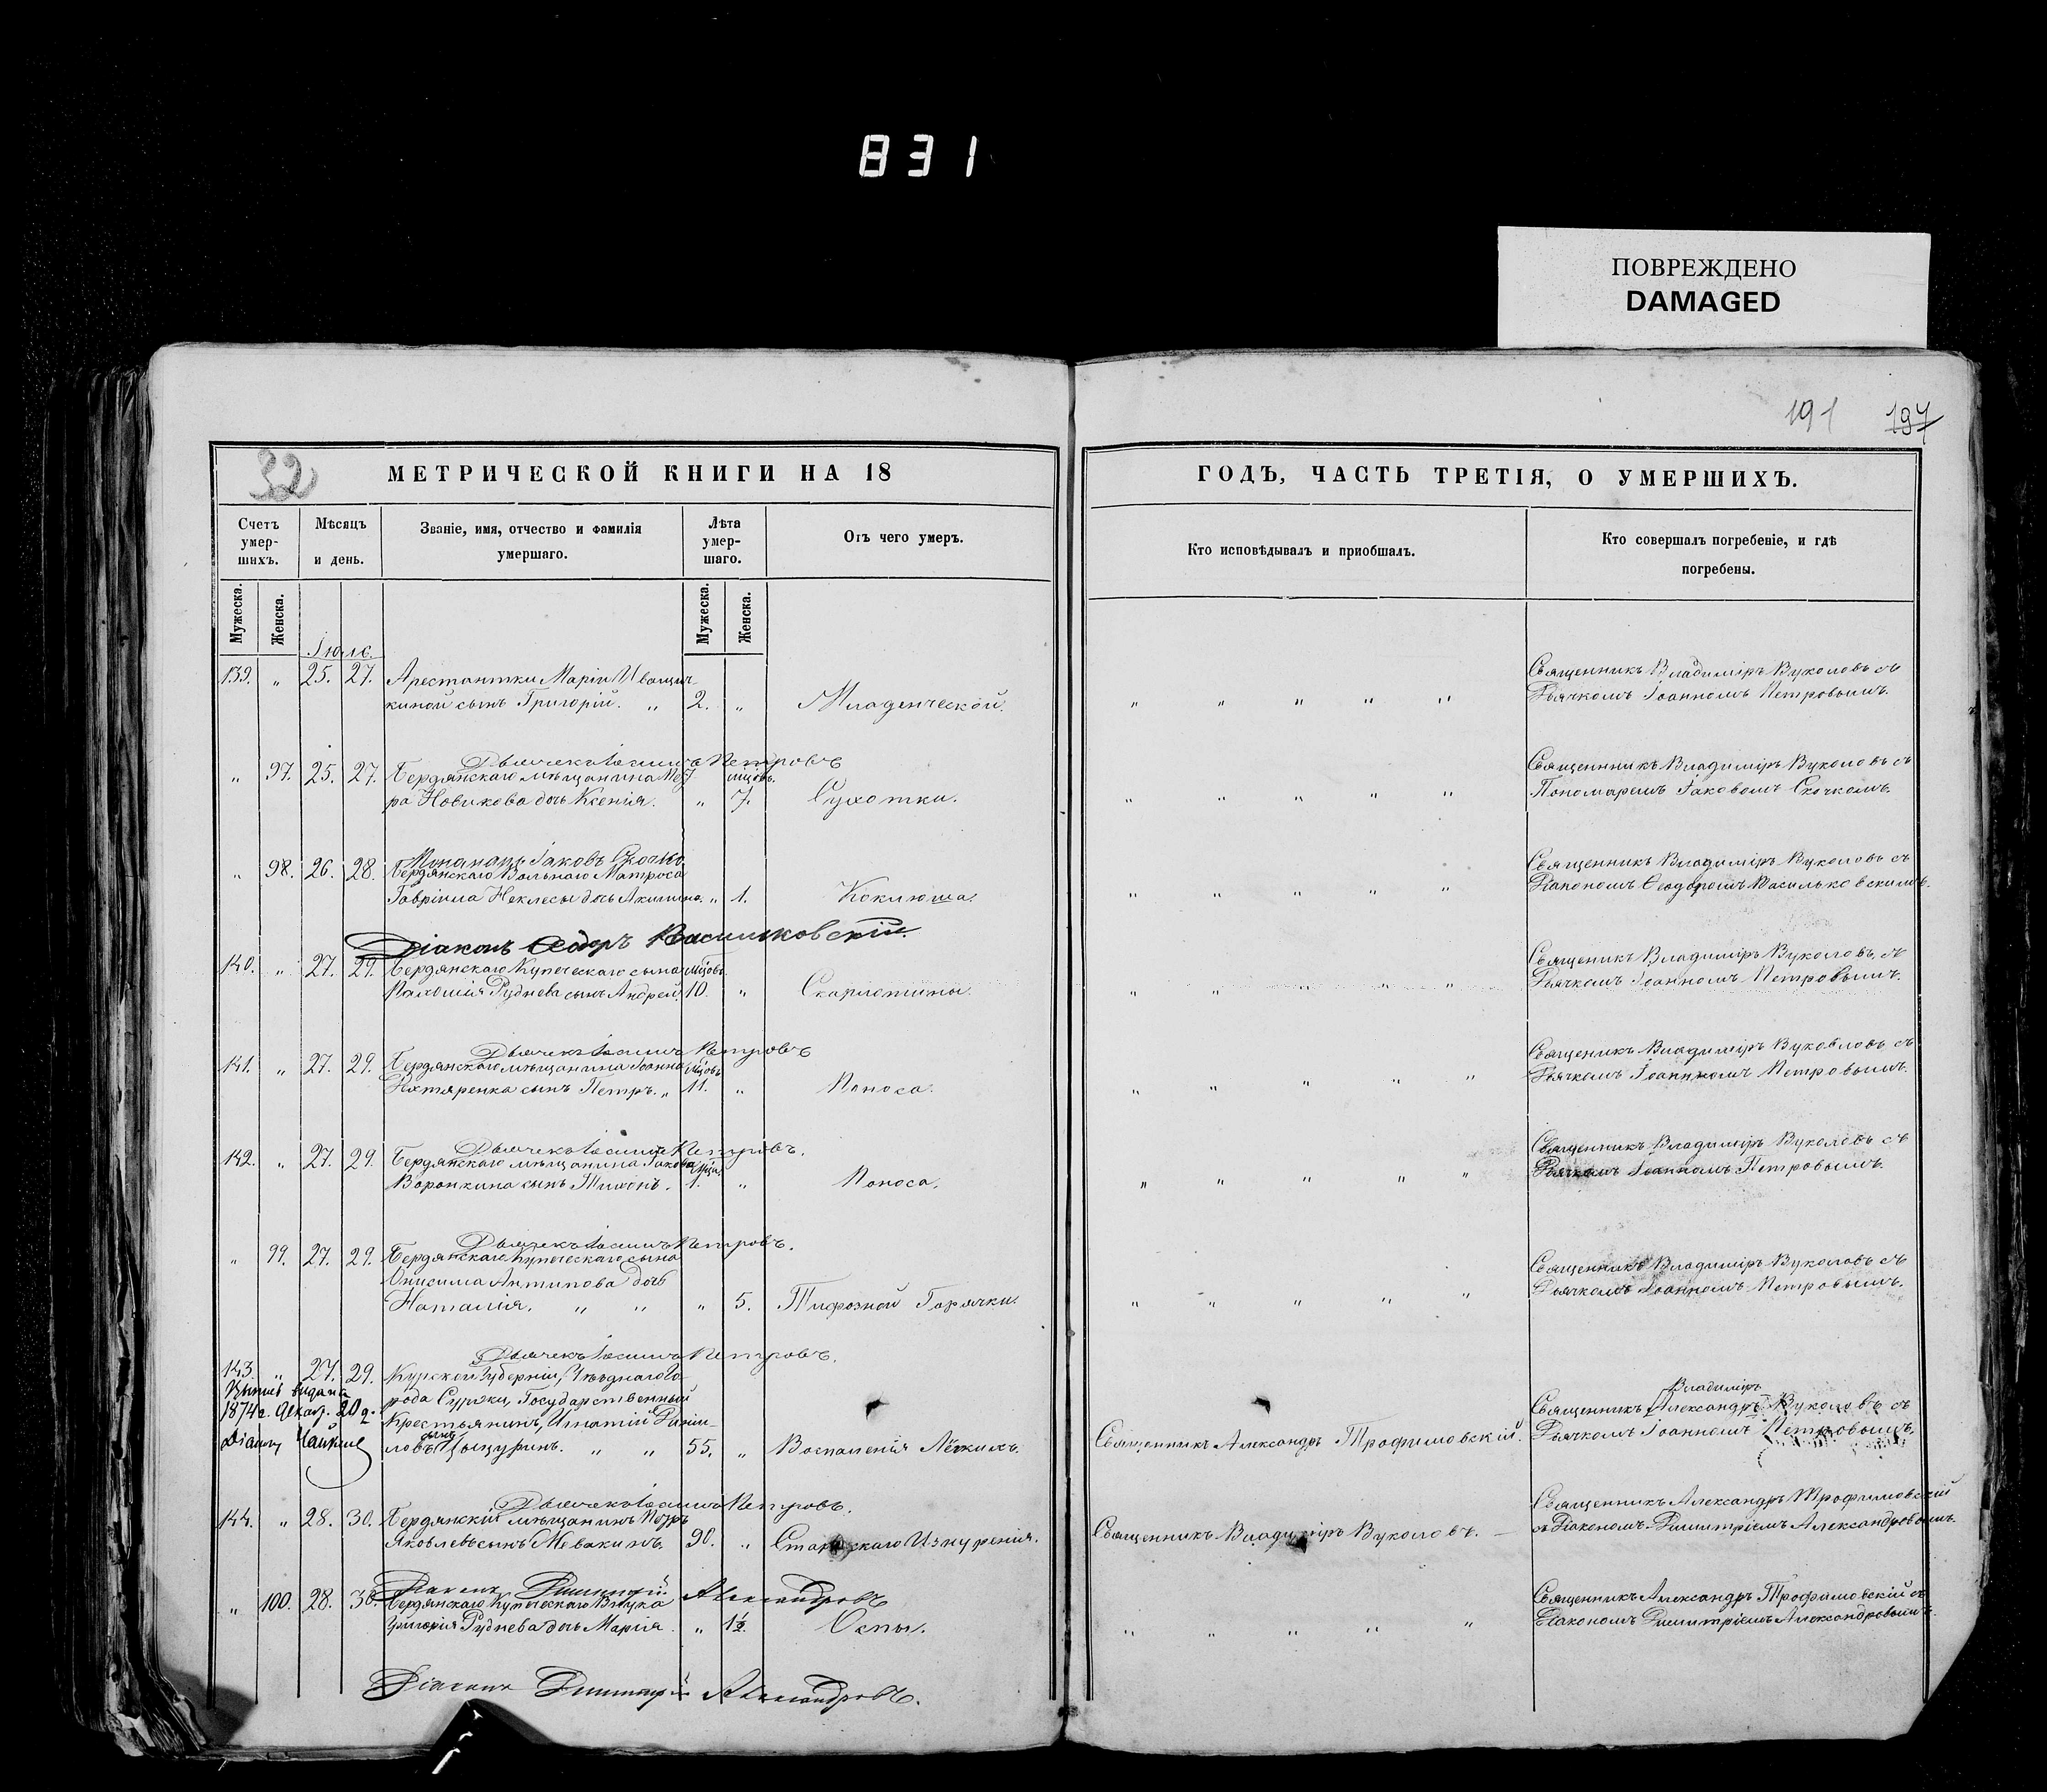 831
ПОВРЕЖДЕНО
DAMAGED
191 197
32
МЕТРИЧЕСКОЙ КНИГИ НА 18
ГОДЪ, ЧАСТЬ ТРЕТІЯ, О УМЕРШИХЪ.
Счетъ умер-шихъ.
Мѣсяцъ и день.
Званіе, имя, отчество и фамилія умершаго.
Лѣта умер-шаго.
Отъ чего умеръ.
Кто исповѣдывалъ и приобщалъ.
Кто совершалъ погребеніе, и гдѣ погребены.
Мужеска. Женска. Мужеска. Женска.
Іюль.
139. „ 25. 27. Арестантки Маріи Иващен- Священникъ Владиміръ Вуколовъ съ
киной сынъ Григорій. „ 2. „ Младенческой. „ „ „ „ „ Дьячкомъ Іоанномъ Петровымъ.
Дьячекъ Іоаннъ Петровъ
„ 97. 25. 27. Бердянскаго мѣщанина Мсцовъ. Священникъ Владиміръ Вуколовъ съ
ра Новикова дочь Ксенія. „ 7. Сухотки. „ „ „ „ „ Пономаремъ Іаковомъ Скочкомъ.
Іаковъ Скочко
„ 98. 26. 28. Бердянскаго Вольнаго Матроса Священникъ Владиміръ Вуколовъ съ
Гавріила Неклесы дочь Акилина. „ 1. Коклюша. „ „ „ „ „ Діакономъ Ѳеодоромъ Васильковскимъ.
Діаконъ Ѳедоръ Васильковскій.
140. „ 27. 29. Бердянскаго Купеческаго сына мсцовъ. Священникъ Владиміръ Вуколовъ съ
Руднева сынъ Андрей 10. „ Скарлатины. „ „ „ „ „ Дьячкомъ Іоанномъ Петровымъ.
Дьячекъ Іоаннъ Петровъ
141. „ 27. 29. Бердянскаго мѣщанина Іоанна мсцовъ Священникъ Владиміръ Вуколовъ съ
сынъ Петръ. „ 11. „ Поноса. „ „ „ „ „ Дьячкомъ Іоанномъ Петровымъ.
Дьячекъ Іоаннъ Петровъ.
142. „ 27. 29. Бердянскаго мѣщанина Іакова Священникъ Владиміръ Вуколовъ съ
Воронкина сынъ Тихонъ. 1. „ Поноса. „ „ „ „ „ Дьячкомъ Іоанномъ Петровымъ.
Дьячекъ Іоаннъ Петровъ.
„ 99. 27. 29. Бердянскаго Купеческаго сына Священникъ Владиміръ Вуколовъ съ
Онисима Антипова дочь Дьячкомъ Іоанномъ Петровымъ.
Наталія. „ „ „ 5. Тифозной Горячки. „ „ „ „ „
Дьячекъ Іоаннъ Петровъ.
143. „ 27. 29. Курской Губерніи, Уѣзднаго Го-
видана рода Суджи, Государственный Владиміръ
1874 г. Декаб. 20 д. Крестьянинъ, Игнатій Дані- Священникъ Александръ Вуколовъ съ
ловъ сынъ Цыцуринъ. „ „ 55. „ Воспаленія Лёгкихъ. Священникъ Александръ Трофимовскій. Дьячкомъ Іоанномъ Петровымъ.
Дьячекъ Іоаннъ Петровъ.
144. „ 28. 30. Бердянскій мѣщанинъ Петръ Священникъ Александръ Трофимовскій
Яковлевъ сынъ 90. „ Старческаго Изнуренія. Священникъ Владиміръ Вуколовъ. съ Діакономъ Димитріемъ Александровымъ.
Діаконъ Димитрій Александровъ
„ 100. 28. 30. Бердянскаго Купеческаго Внука Священникъ Александръ Трофимовскій съ
Григорія Руднева дочь Марія. „ 1½. Оспы. „ „ „ „ „ Діакономъ Димитріемъ Александровымъ.
Діаконъ Димитрій Александровъ.